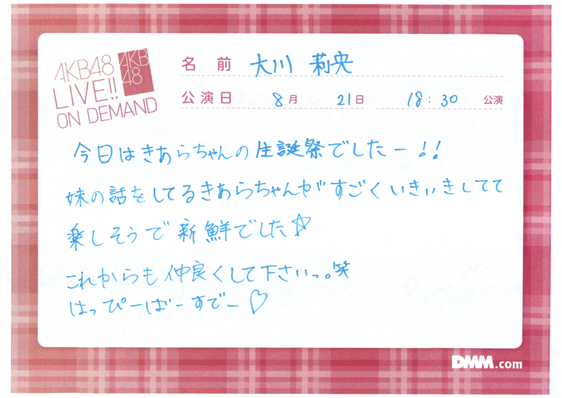 AKB48
LIVE!!
ON DEMAND
AKB
48
名前 大川 莉央
公演日 8月 21日 18:30 公演
今日はきあらちゃんの生誕祭でしたー!!
妹の話をしてるきあらちゃんがすごくいきいきしてて
楽しそうで新鮮でした☆
これからも仲良くして下さいっ。笑
はっぴーばーすでー♡
DMM.com